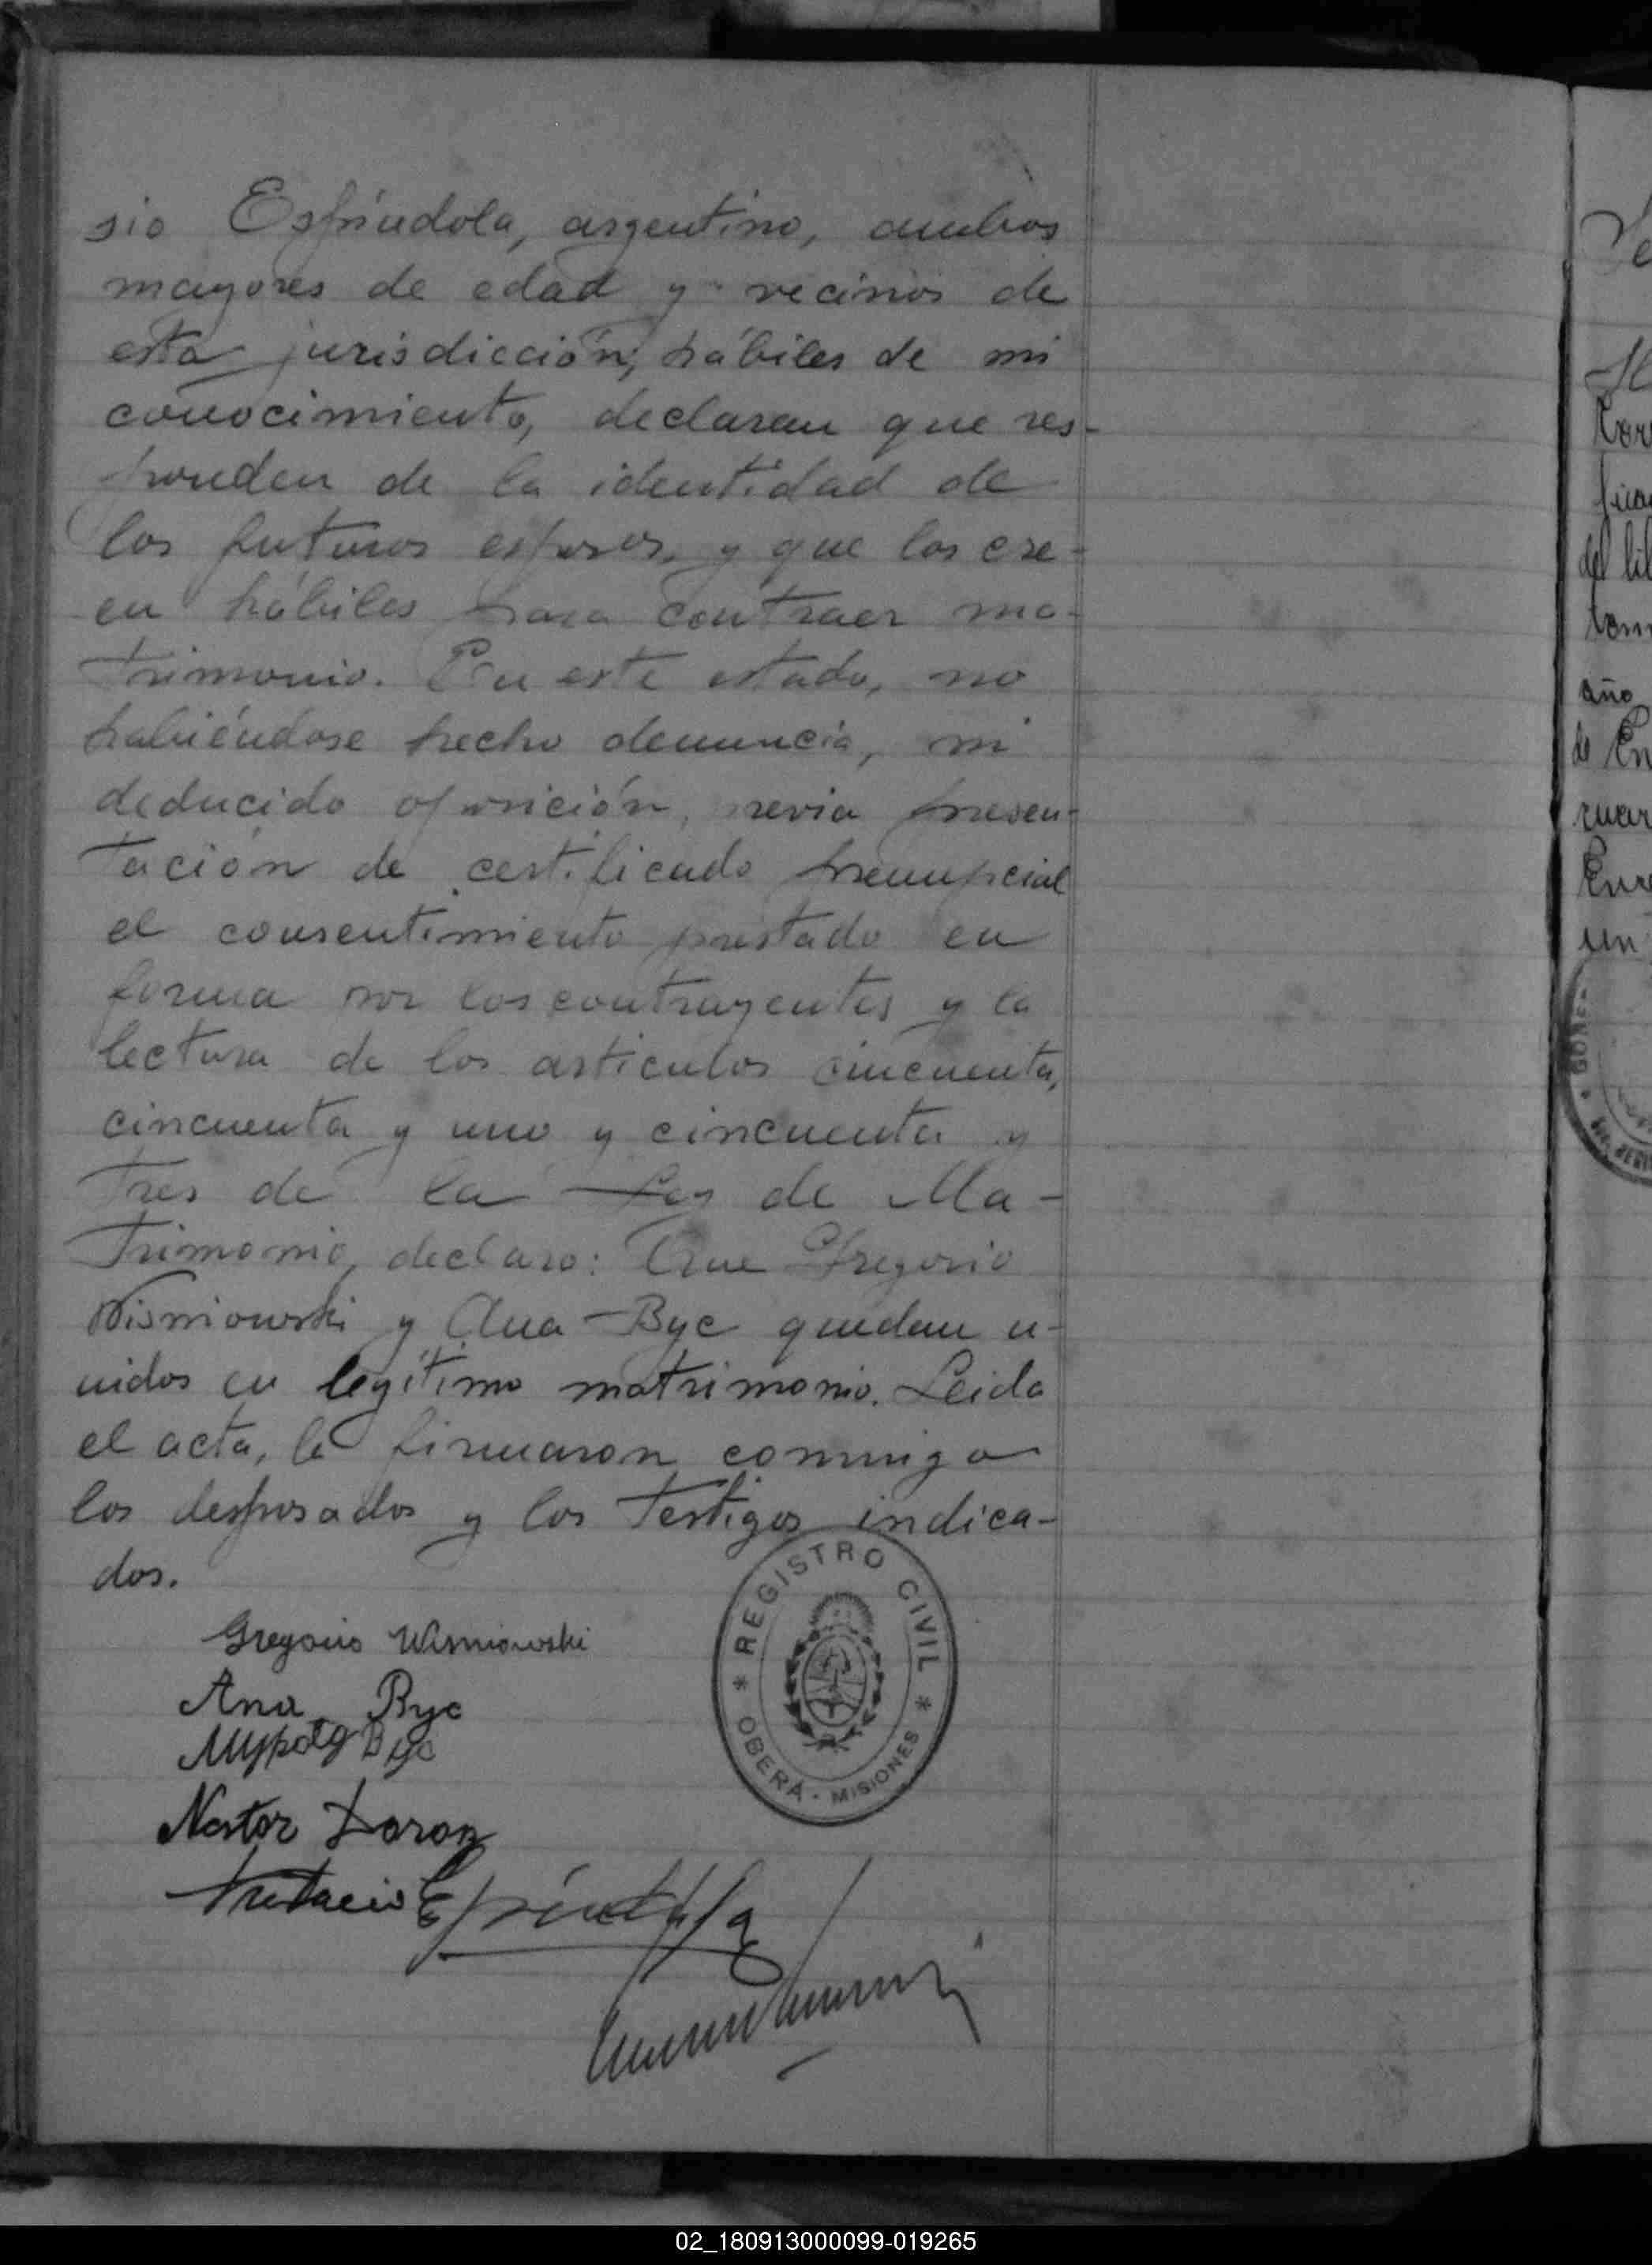 sio Espíndola, argentino, ambos
mayores de edad y vecinos de
esta jurisdicción, hábiles de mi
conocimiento, declaran que res-
ponden de la identidad de
los futuros esposos, y que los cre-
en hábiles para contraer ma-
trimonio. En este estado, no
habiéndose hecho denuncia, ni
deducido oposición, previa presen-
tación de certificado prenupcial
el consentimiento prestado en
forma por los contrayentes y la
lectura de los articulos cincuenta,
cincuenta y uno y cincuenta y
tres de la Ley de Ma-
trimonio, declaro: Que Gregorio
Wisniowski y Ana Byc quedan u-
nidos en legítimo matrimonio. Leida
el acta, la firmaron conmigo
los desposados y los testigos indica-
dos.
Gregorio Wisniowski
Ana Byc
Byc
Nestor Doron
Espíndola
* REGISTRO CIVIL *
OBERÁ - MISIONES
del
año
de En
un
02_180913000099-019265